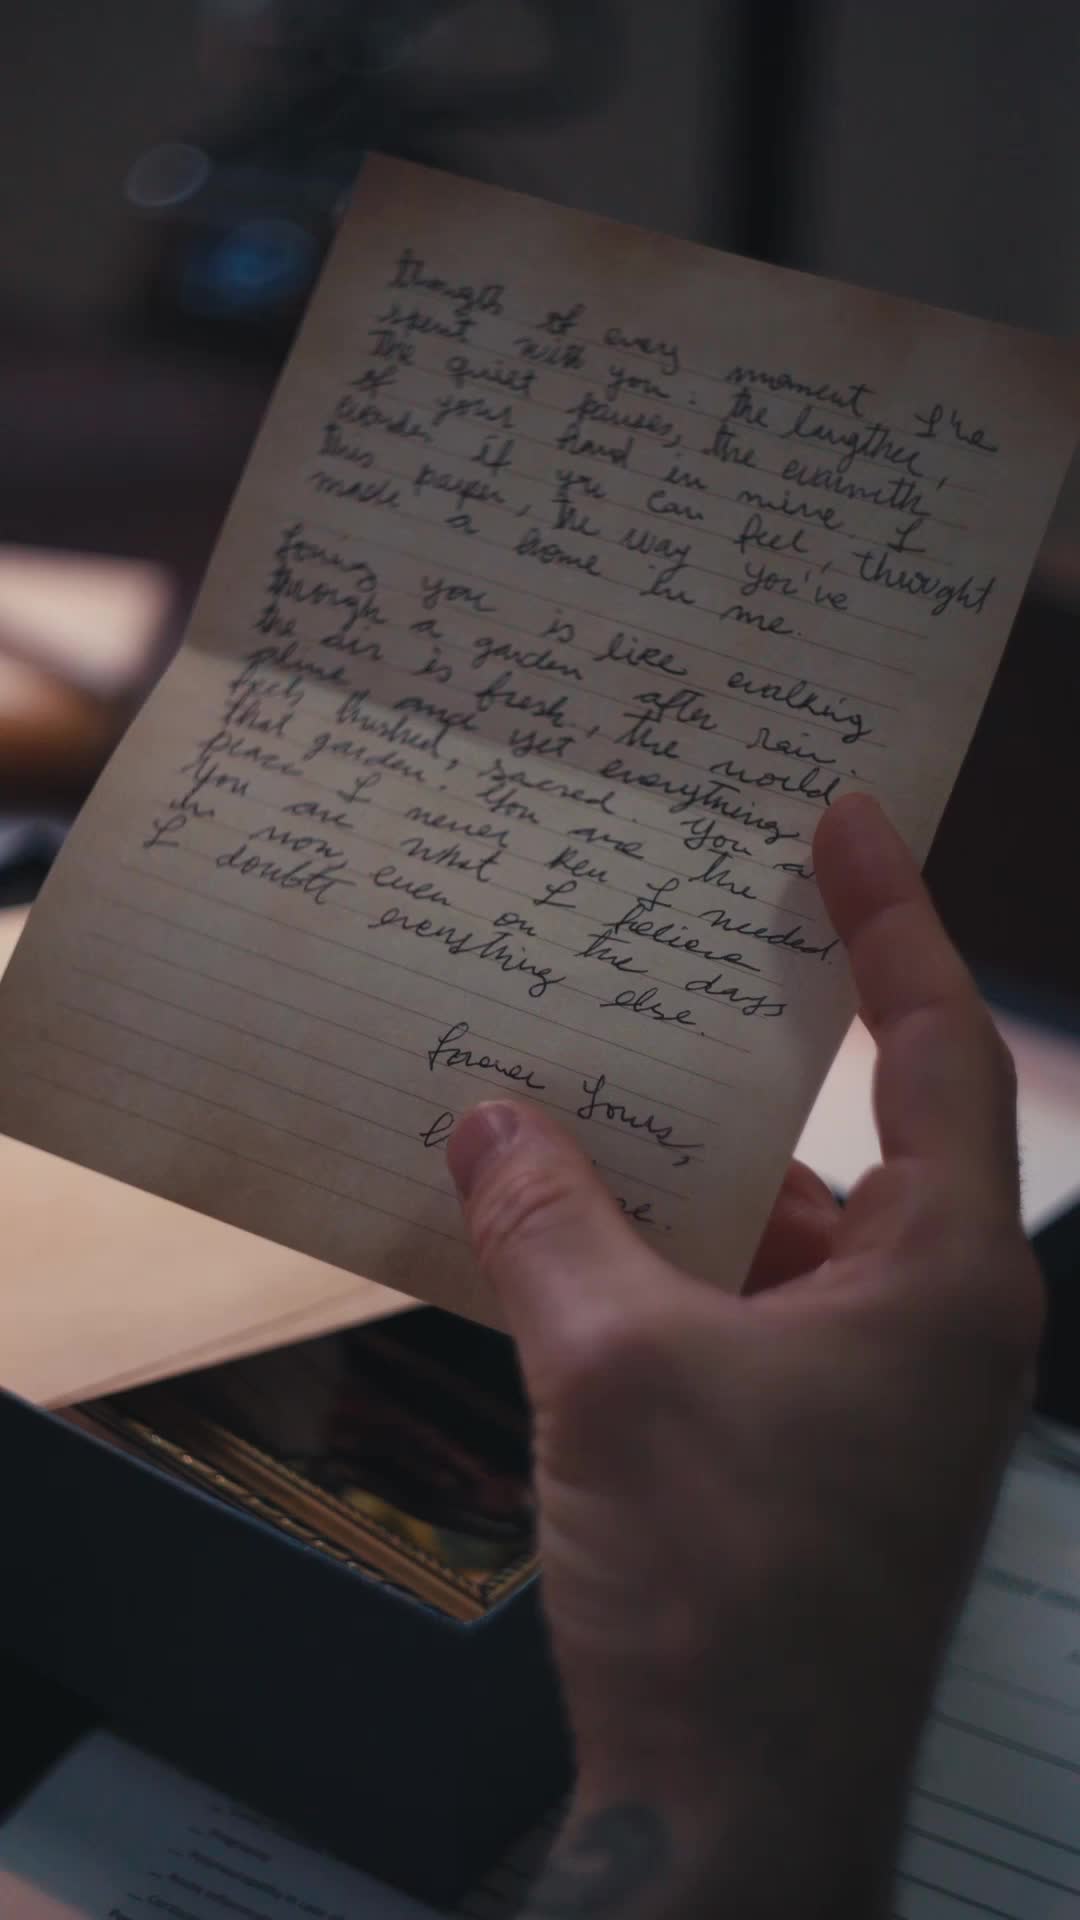 through of every moment I've
spent with you. The laughter,
the quiet pauses, the warmth
of your hand in mine. I
wonder if you can feel, throught
this paper, the way you've
made a home in me.
Loving you is like walking
through a garden after rain.
the air is fresh, the world
and yet everything
feels hushed, sacred. You a
that garden. You are the
peace I never I needed.
You are what I believe
in now, even on the days
I doubt everything else.
Forever Yours,